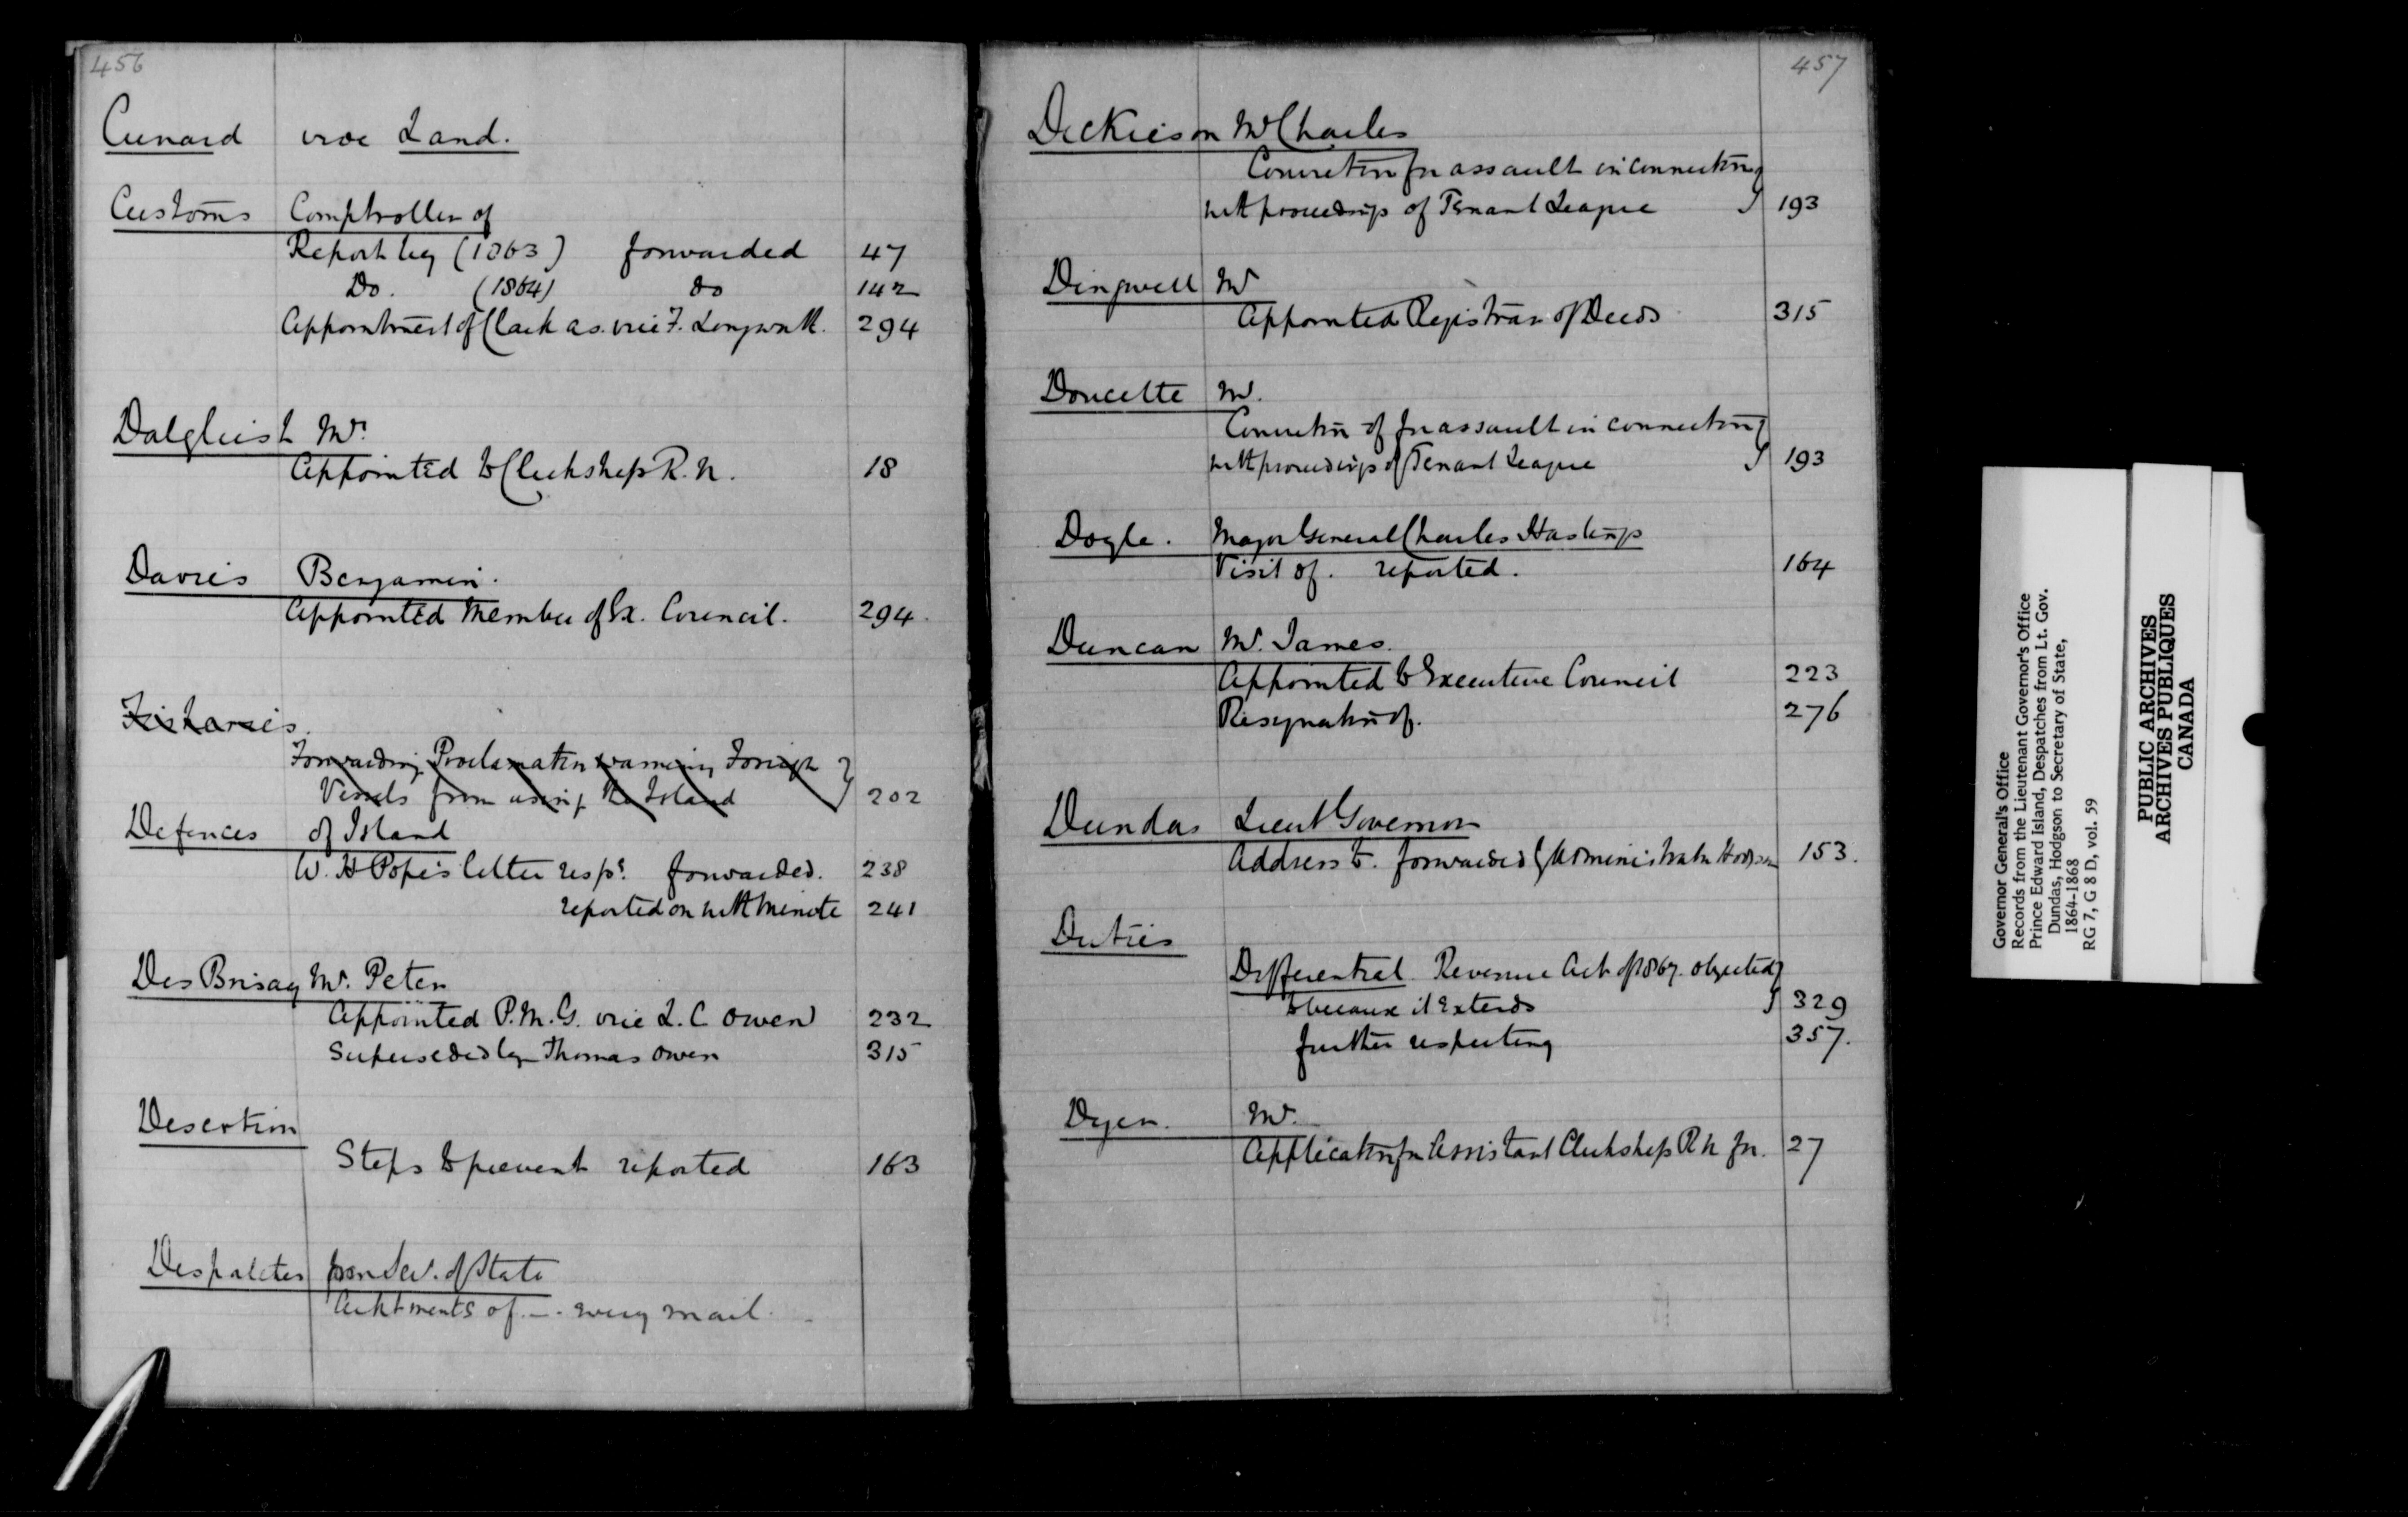 456
Cunard vide Land.
Customs Comptroller of
Report by (1863) forwarded 47
Do. (1864) do 142
Appointment of Clark as. vice F. Longworth. 294
Dalgliesh Mr.
Appointed to Clerkship R. N. 18
Davies Benjamin.
Appointed Member of Ex. Council. 294.
Fisheries
Forwarding Proclamation warning Foreign
Vessels from using the Island 202
Defences of Island
W. H Pope's letter resps. forwarded. 238
reported on with minute 241
Des Brisay Mr. Peter
Appointed P.M.G. vice L. C Owen 232
Superseded by Thomas Owen 315
Desertion
Steps to prevent reported 163
Despatches from Sec. of State
of — every mail.
457
Dickieson Mr Charles
Conviction for assault in connection
with proceedings of Tenant League 193
Dingwell Mr
Appointed Registrar of Deeds 315
Doucette Mr.
Conviction of for assault in connection
with proceedings of Tenant League 193
Doyle. Major General Charles Hastings
Visit of. reported. 164
Duncan Mr. James.
Appointed to Executive Council 223
Resignation of. 276
Dundas Lieut Governor
Address to. forwarded by Administrator Hodgson 153.
Duties
Differential Revenue Act of 1867. objected
to because it extends 329
further respecting 357.
Dyer. Mr.
Application for Assistant Clerkship R N for. 27
Governor General's Office
Records from the Lieutenant Governor's Office
Prince Edward Island, Despatches from Lt. Gov.
Dundas, Hodgson to Secretary of State,
1864-1868
RG 7, G 8 D, vol. 59
PUBLIC ARCHIVES
ARCHIVES PUBLIQUES
CANADA